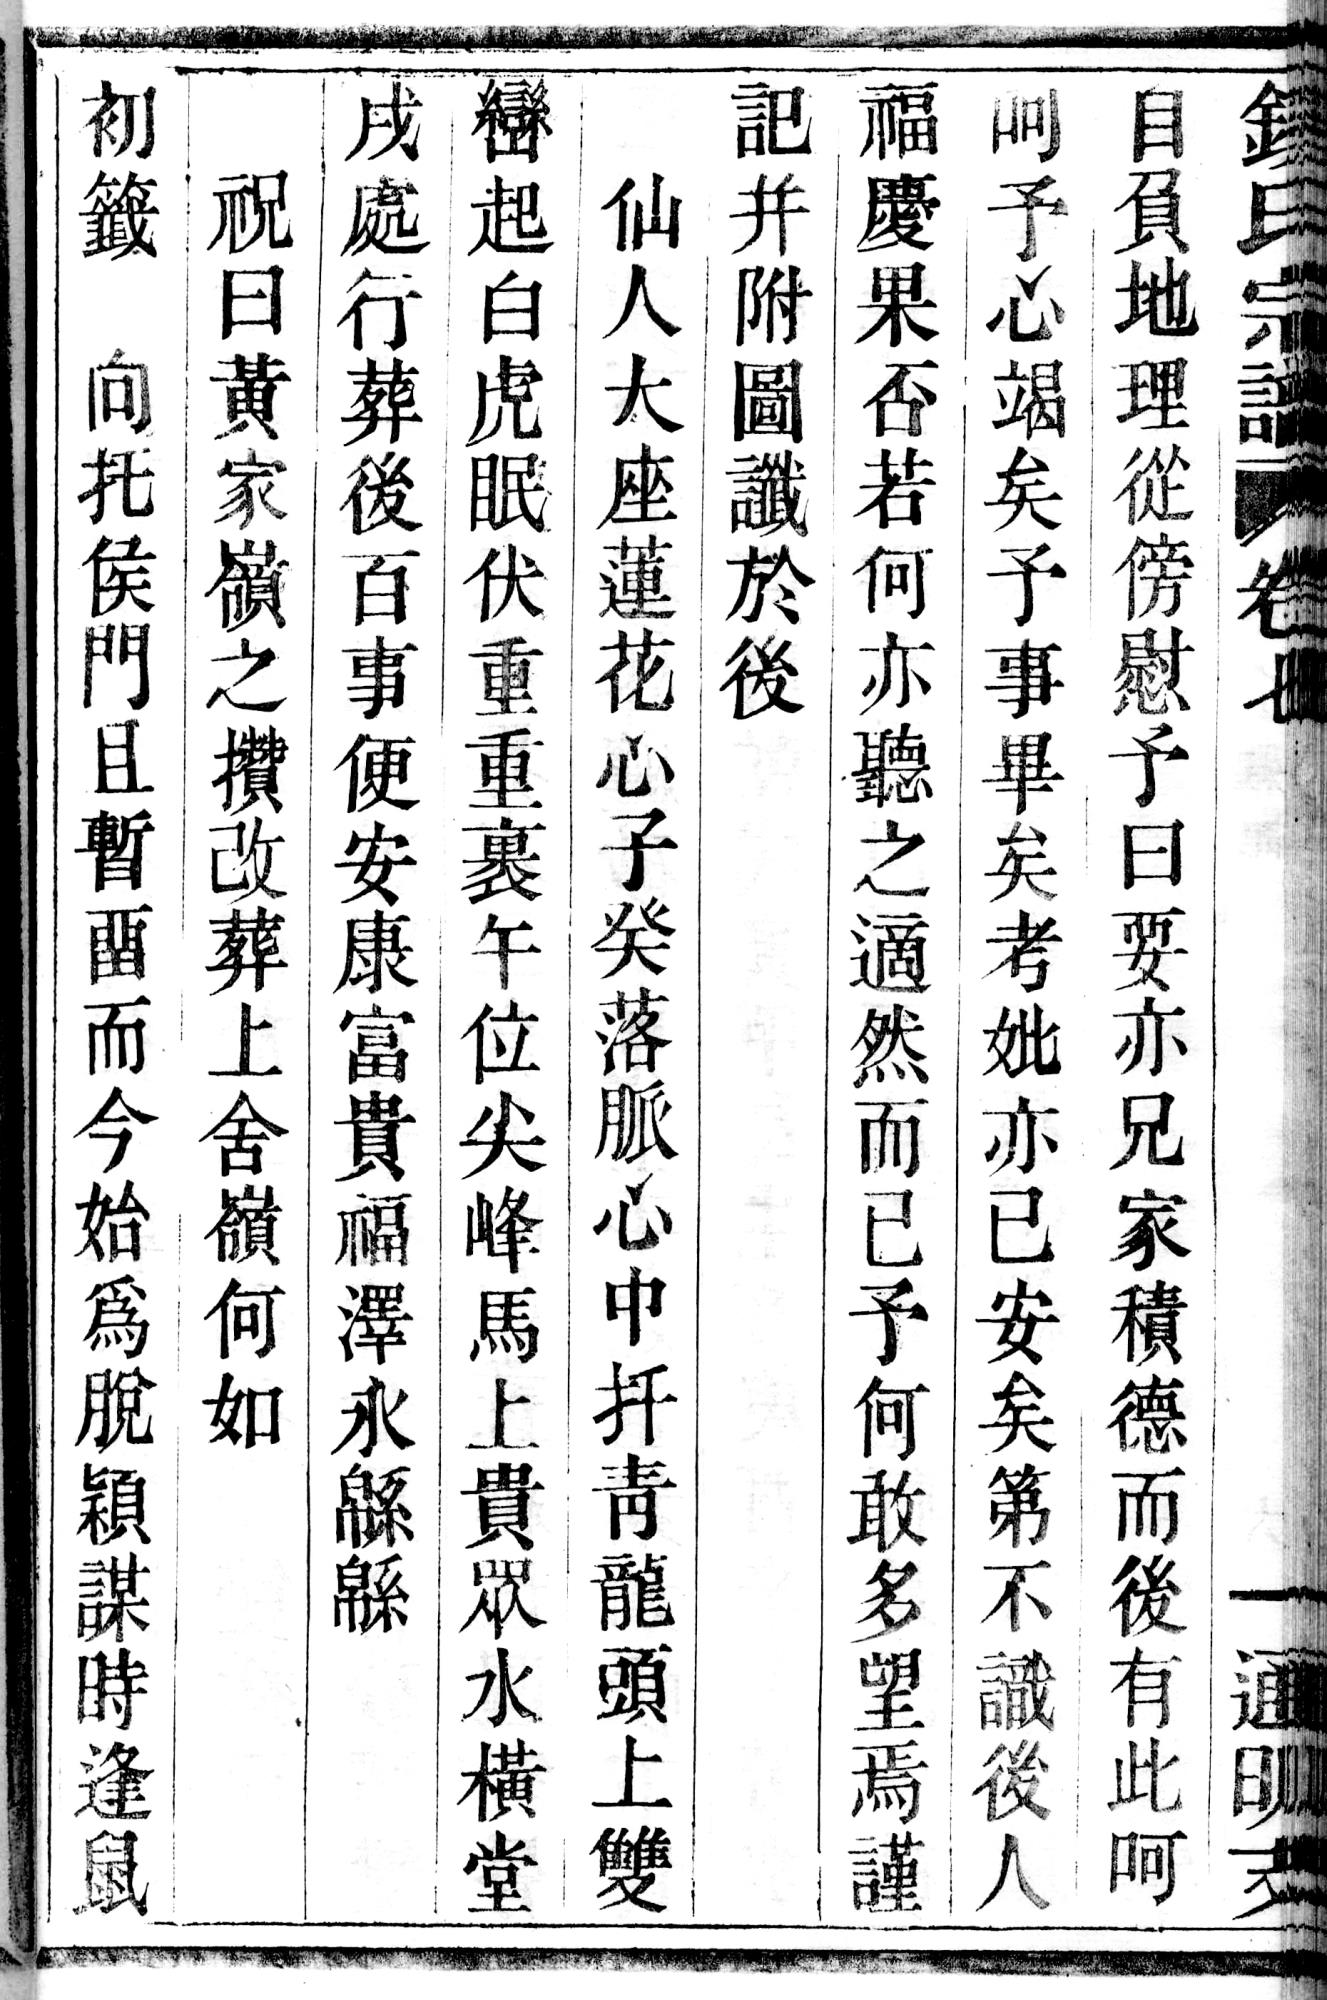 氏宗譜 卷 一 通明支
自負地理從傍慰予曰要亦兄家積德而後有此呵
呵予心竭矣予事畢矣考妣亦已安矣第不識後人
福慶果否若何亦聽之適然而已予何敢多望焉謹
記并附圖讖於後
仙人大座蓮花心子癸落脈心中扦青龍頭上雙
巒起白虎眠伏重重裹午位尖峰馬上貴眾水橫堂
戌處行葬後百事便安康富貴福澤永緜緜
祝曰黃家嶺之攢改葬上舍嶺何如
初籤 向托侯門且暫畱而今始爲脫穎謀時逢鼠